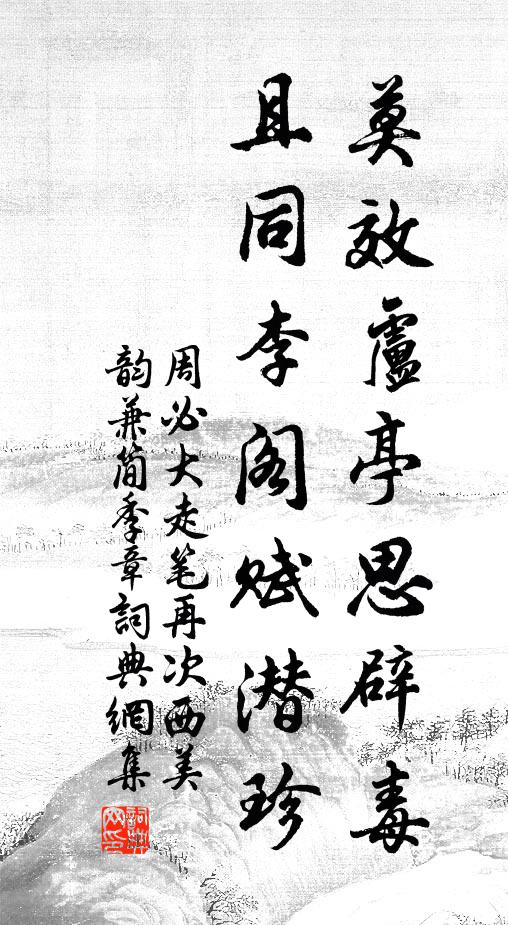 莫效廬亭思辟毒
且同李阁赋潜珍
周必大走笔再次西美
韵兼简季章詞典網集